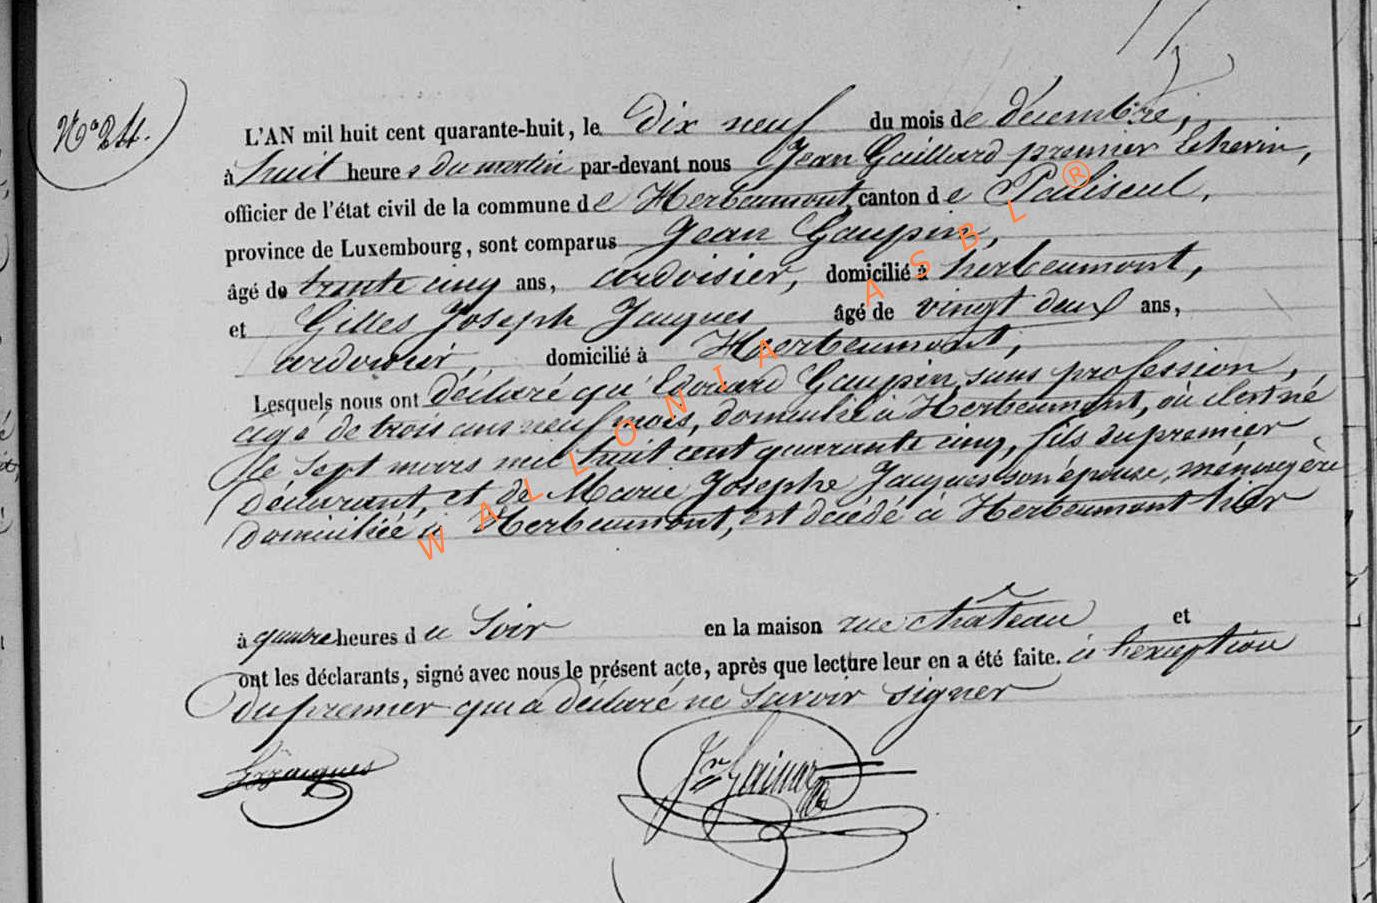 N° 24.
L'AN mil huit cent quarante-huit, le dix neuf du mois de décembre,
à huit heures du matin par-devant nous Jean Gaillard premier Echevin,
officier de l'état civil de la commune de Herbeumont, canton de Paliseul,
province de Luxembourg, sont comparus Jean Gaupin,
âgé de trente cinq ans, ardoisier, domicilié à herbeumont,
et Gilles Joseph Jacques âgé de vingt deux ans,
ardoisier, domicilié à Herbeumont,
Lesquels nous ont déclaré qu'Edouard Gaupin, sans profession,
agé de trois ans neuf mois, domicilié à Herbeumont, où il est né
le sept mars mil huit cent quarante cinq, fils du premier
déclarant, et de Marie Josephe Jacques son épouse, ménagère
domiciliée à Herbeumont, est décédé à Herbeumont hier
à quatre heures du soir en la maison rue château et
ont les déclarants, signé avec nous le présent acte, après que lecture leur en a été faite. à l'exception
du premier qui a déclaré ne savoir signer
WALLONIA ASBL ®